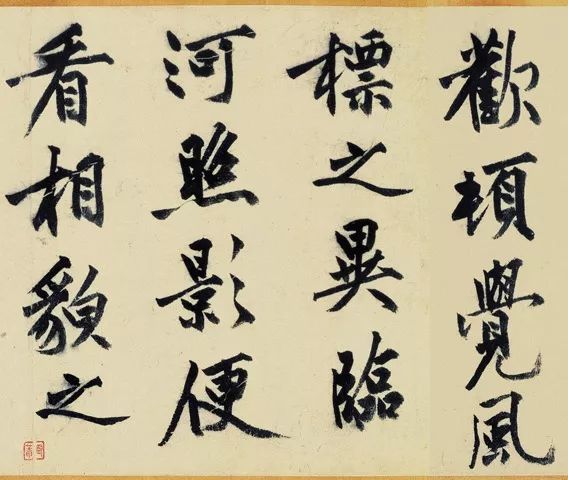 歡頓覺風
標之異臨
河照影便
看相貌之